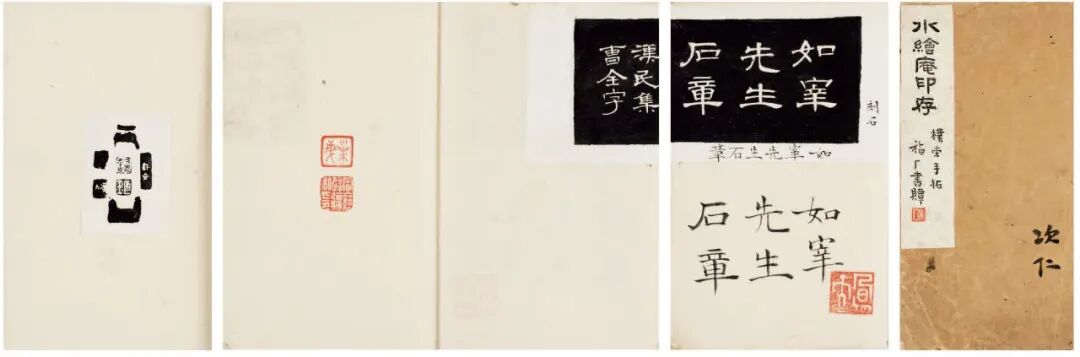 水繪庵印存
樸堂手拓
福厂書
次仁
如宰
先生
石章
漢民集
曹全字
刻石
如宰先生石章
如宰
先生
石章